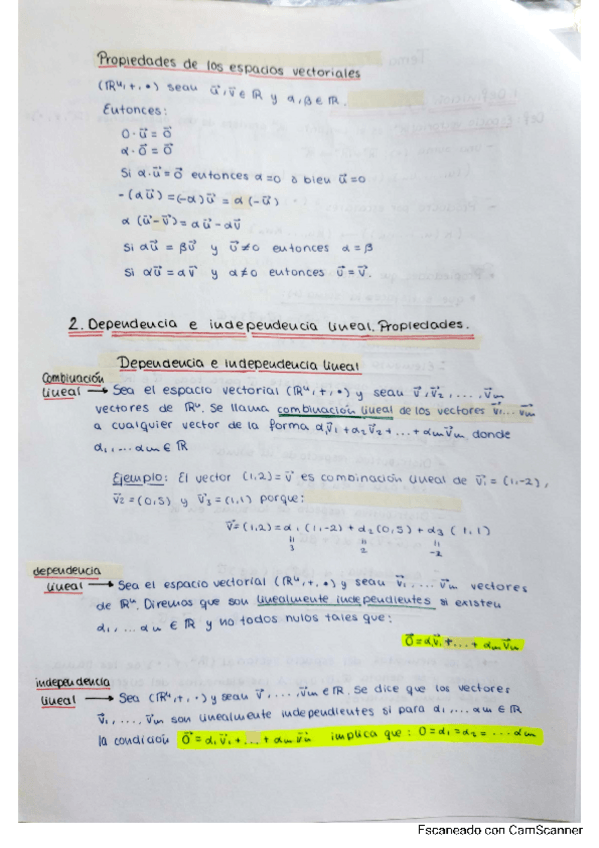 Propiedades de los espacios vectoriales
(ℝⁿ, +, •) sean u⃗, v⃗ ∈ ℝ y α, β ∈ ℝ.
Entonces:
0 · u⃗ = 0⃗
α · 0⃗ = 0⃗
Si α · u⃗ = 0⃗ entonces α = 0 ó bien u⃗ = 0
-(α u⃗) = (-α) u⃗ = α (-u⃗)
α (u⃗ - v⃗) = α u⃗ - α v⃗
Si α u⃗ = β u⃗ y u⃗ ≠ 0 entonces α = β
Si α u⃗ = α v⃗ y α ≠ 0 entonces u⃗ = v⃗.
2. Dependencia e independencia lineal. Propiedades.
Dependencia e independencia lineal
Combinación
lineal → Sea el espacio vectorial (ℝⁿ, +, •) y sean v⃗, v⃗₂, ..., v⃗m
vectores de ℝⁿ. Se llama combinación lineal de los vectores v⃗₁... v⃗m
a cualquier vector de la forma α₁v⃗₁ + α₂v⃗₂ + ... + αm v⃗m donde
α₁, ... αm ∈ ℝ
Ejemplo: El vector (1,2) = v⃗ es combinación lineal de v⃗₁ = (1,-2),
v⃗₂ = (0,5) y v⃗₃ = (1,1) porque:
v⃗ = (1,2) = α₁ (1,-2) + α₂ (0,5) + α₃ (1,1)
= = =
3 2 -2
dependencia
lineal → Sea el espacio vectorial (ℝⁿ, +, •) y sean v⃗₁, ... v⃗m vectores
de ℝⁿ. Diremos que son linealmente independientes si existen
α₁, ... αm ∈ ℝ y no todos nulos tales que:
0⃗ = α₁v⃗₁ + ... + αm v⃗m
independencia
lineal → Sea (ℝⁿ, +, ·) y sean v⃗₁, ..., v⃗m ∈ ℝ. Se dice que los vectores
v⃗₁, ..., v⃗m son linealmente independientes si para α₁, ... αm ∈ ℝ
la condición 0⃗ = α₁ v⃗₁ + ... + αm v⃗m implica que: 0 = α₁ = α₂ = ... αm
Escaneado con CamScanner